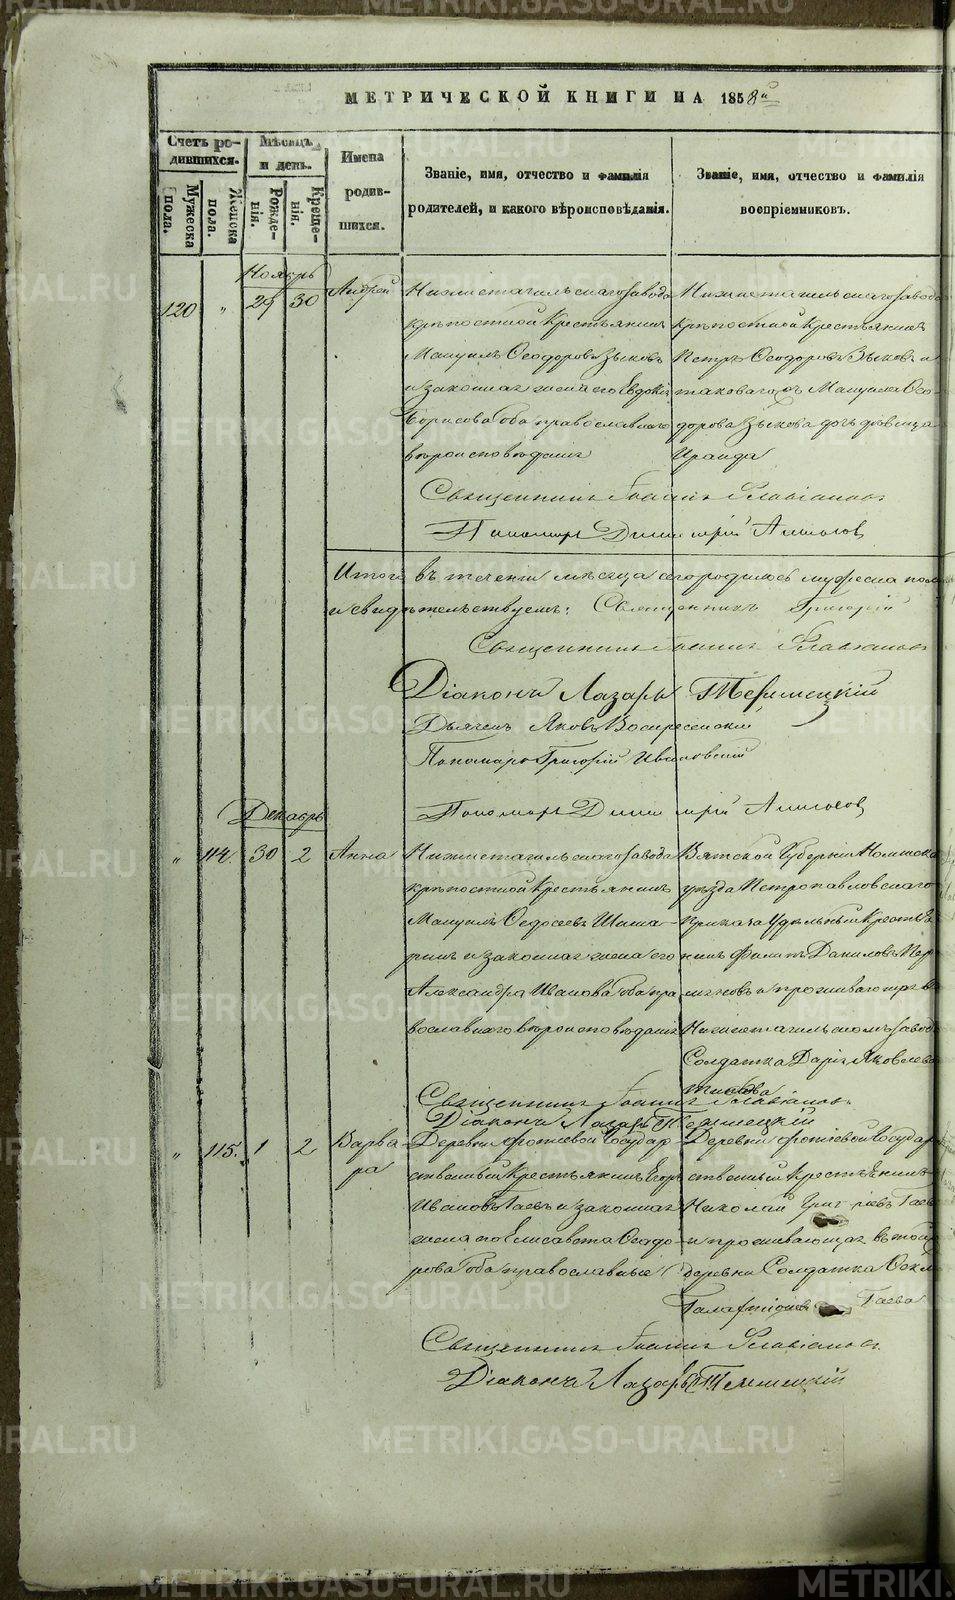 МЕТРИЧЕСКОЙ КНИГИ НА 1858й
Счетъ ро-
дившихся.
Мужеска
пола.
Женска
пола.
Мѣсяцъ
и день.
Рожде-
нія.
Креще-
нія.
Имена
родив-
шихся.
Званіе, имя, отчество и фамилія
родителей, и какого вѣроисповѣданія.
Званіе, имя, отчество и фамилія
воспріемниковъ.
Ноябрь
120 " 29 30 Андрей
Нижнетагильскаго завода
крѣпостной Крестьянинъ
Мануилъ Ѳеодоровъ Зыковъ
и законная жена его Евдокія
Борисова оба православнаго
вѣроисповѣданія
Нижнетагильскаго завода
крѣпостной Крестьянинъ
Петръ Ѳеодоровъ Зыковъ и
таковаго же Мануила Ѳео-
дорова Зыкова дочь дѣвица
Ираида
Священникъ Іоаннъ Славніновъ
Пономарь Димитрій Алмосов
Итого въ теченіи мѣсяца сего родилось мужеска пола
и свидѣтельствуемъ: Священникъ Григорій
Священникъ Іоаннъ
Діаконъ Лазарь
Дьячекъ Яковъ Воскресенскій
Пономарь Григорій Ивановскій
Пономарь Димитрій
Декабрь
" 114. 30 2 Анна
Нижнетагильскаго завода
крѣпостной Крестьянинъ
Мануилъ Ѳедосеевъ Шина-
ринъ и законная жена его
Александра Иванова оба пра-
вославнаго вѣроисповѣданія
Вятской Губерніи
уѣзда Петропавловскаго
Приказа Удѣльный Крестья-
нинъ Филипъ Даниловъ Пер-
миновъ и проживающая въ
Нижнетагильскомъ заводѣ
Солдатка Дарія Яковлева
Священникъ Іоаннъ
Діаконъ Лазарь
" 115. 1 2 Варва-
ра
Деревни Фотѣевой Государ-
ственный Крестьянинъ Егоръ
Ивановъ Гаевъ и законная
жена его Елисавета Ѳеодо-
рова оба православные
Деревни Фотѣевой Государ
ственный Крестьянинъ
Николай Григорьевъ Гаевъ
и проживающая въ той
деревни Солдатка
Гаева
Священникъ Іоаннъ
Діаконъ Лазарь
METRIKI.GASO-URAL.RU